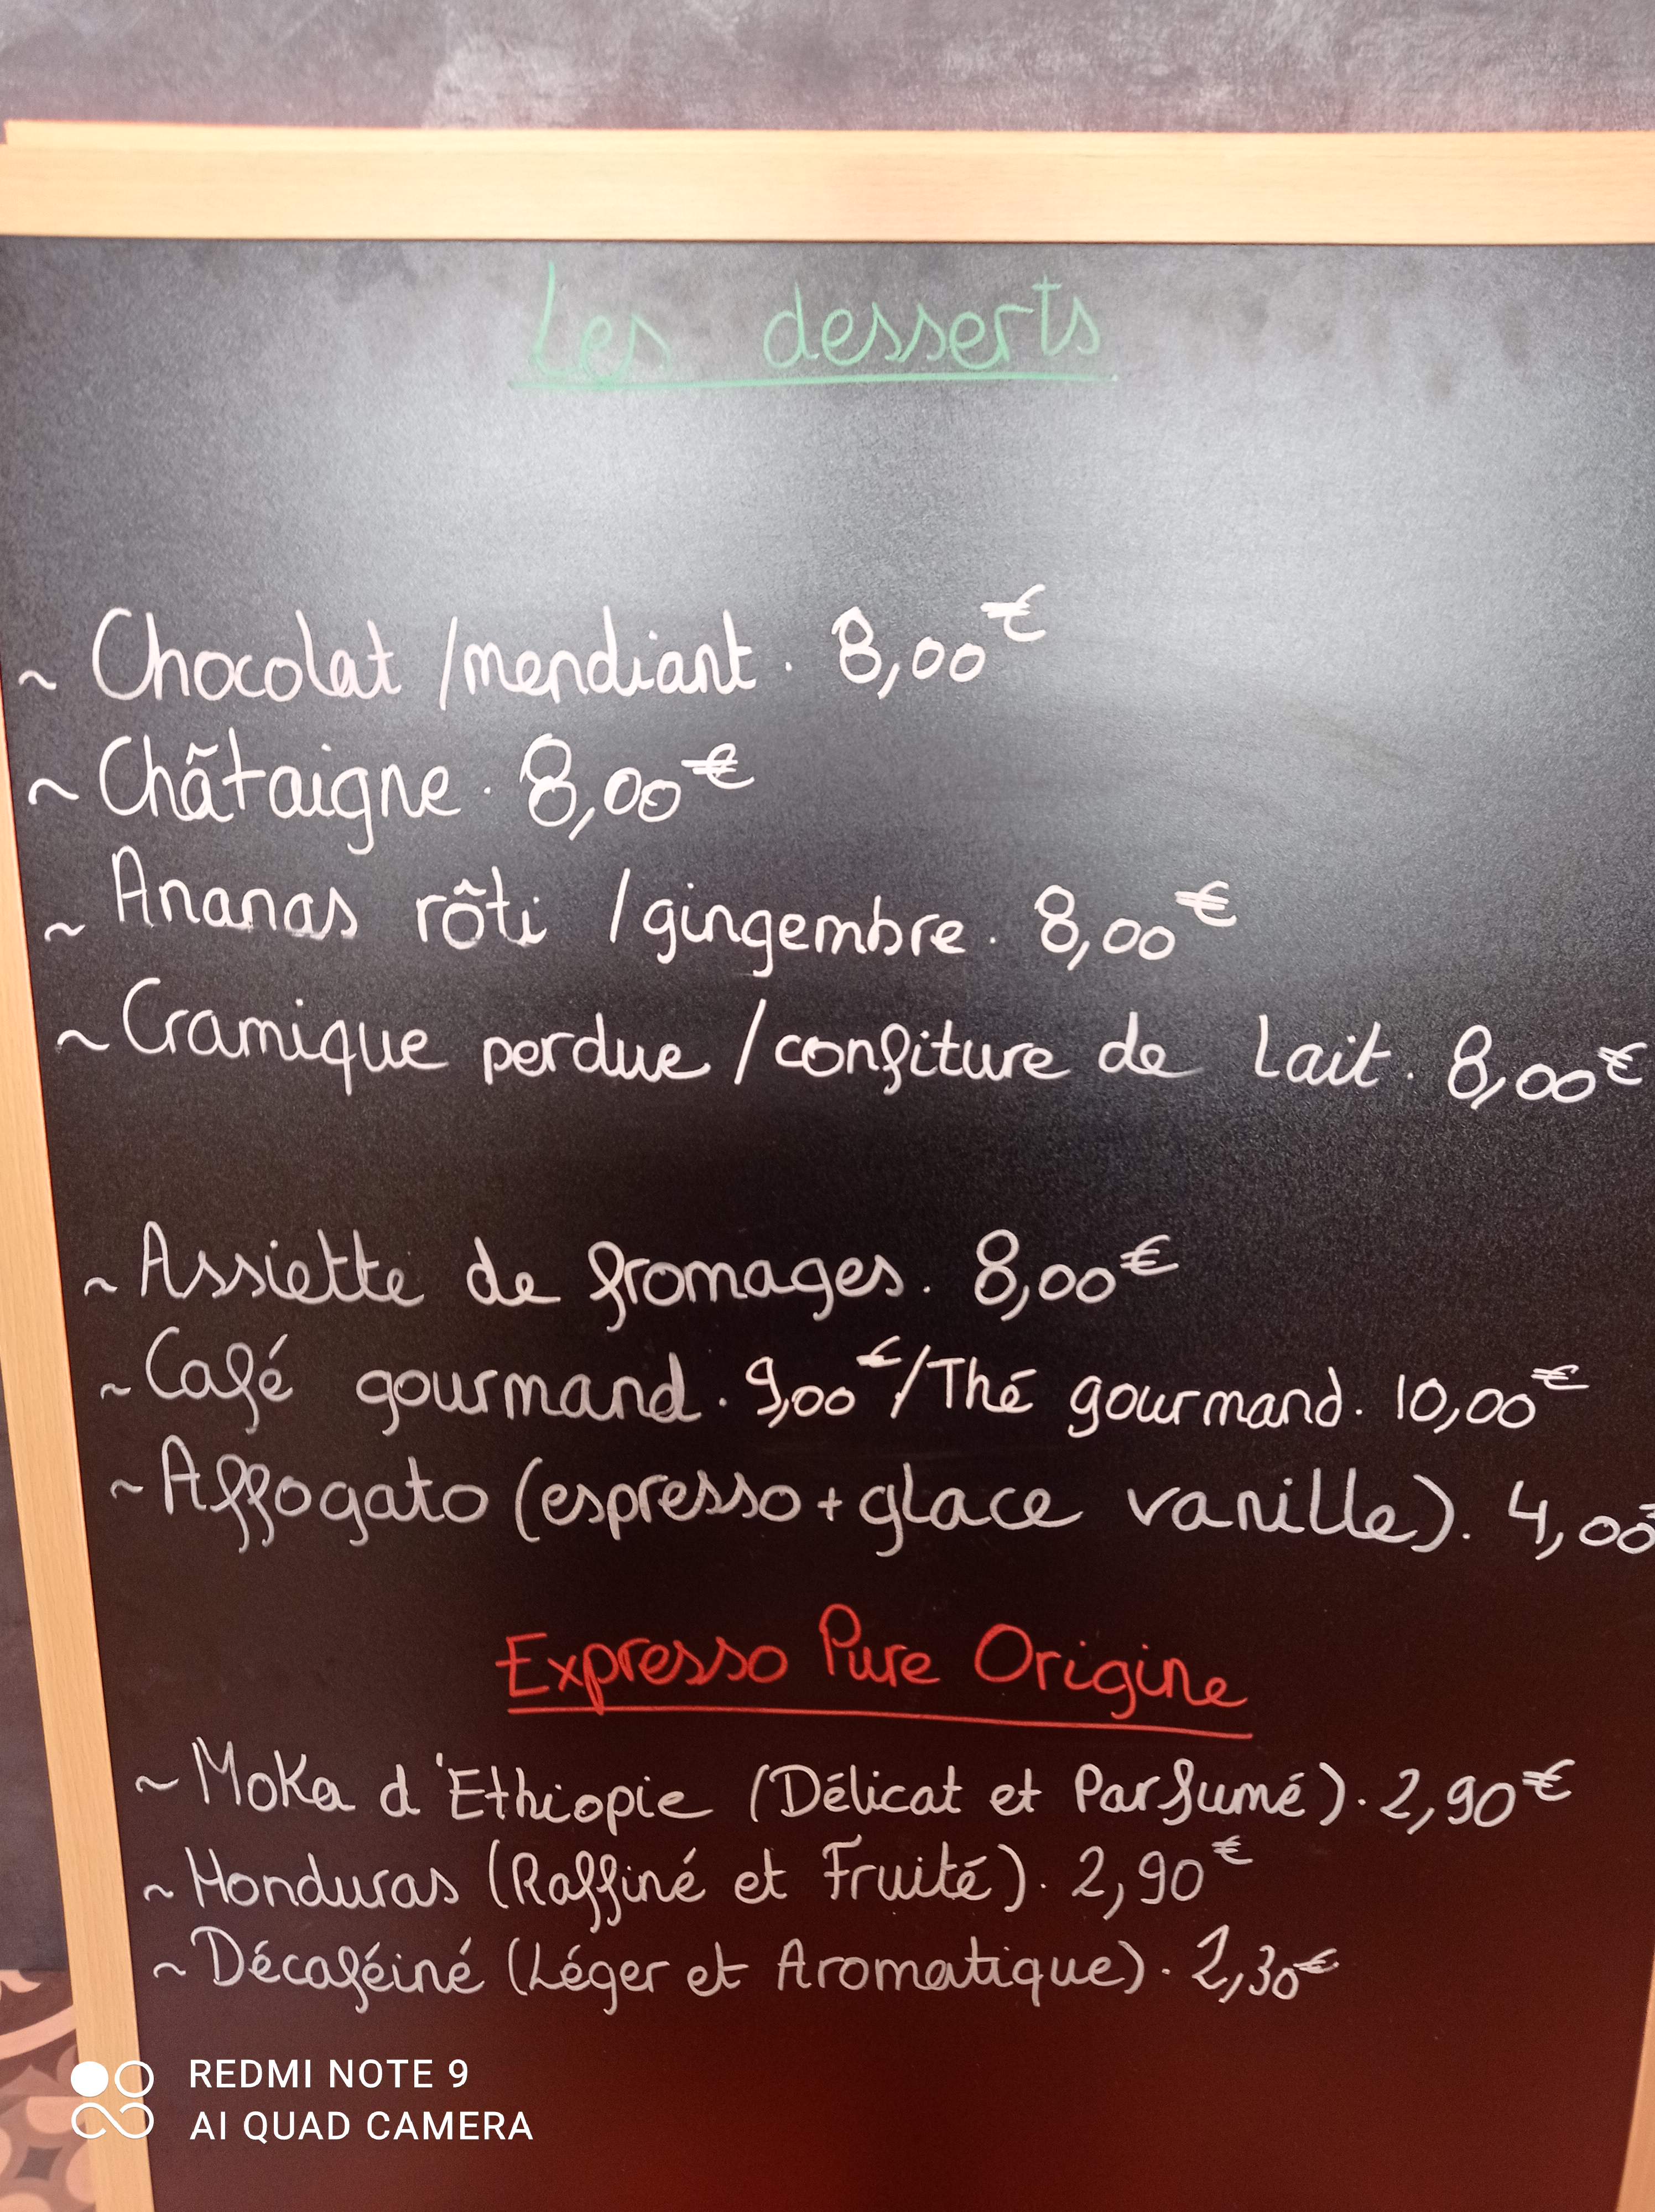 Les desserts
~ Chocolat /mendiant. 8,00€
~ Châtaigne. 8,00€
~ Ananas rôti /gingembre. 8,00€
~ Cramique perdue /confiture de lait. 8,00€
~ Assiette de fromages. 8,00€
~ Café gourmand. 9,00€/Thé gourmand. 10,00€
~ Affogato (espresso+glace vanille). 4,00€
Expresso Pure Origine
~ Moka d'Ethiopie (Délicat et Parfumé). 2,90€
~ Honduras (Raffiné et Fruité). 2,90€
~ Décaféiné (Léger et Aromatique). 2,30€
REDMI NOTE 9
AI QUAD CAMERA